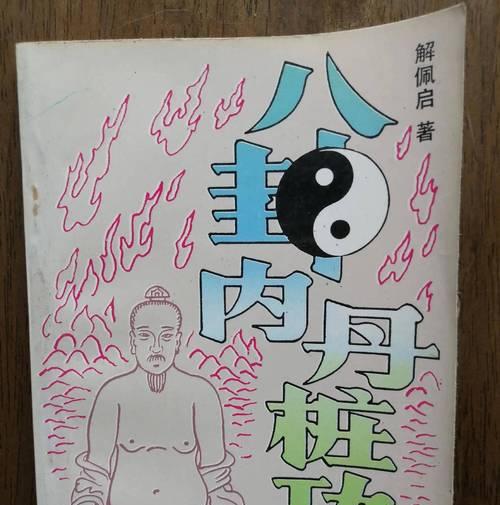 解佩启 著
八卦内
丹桩功